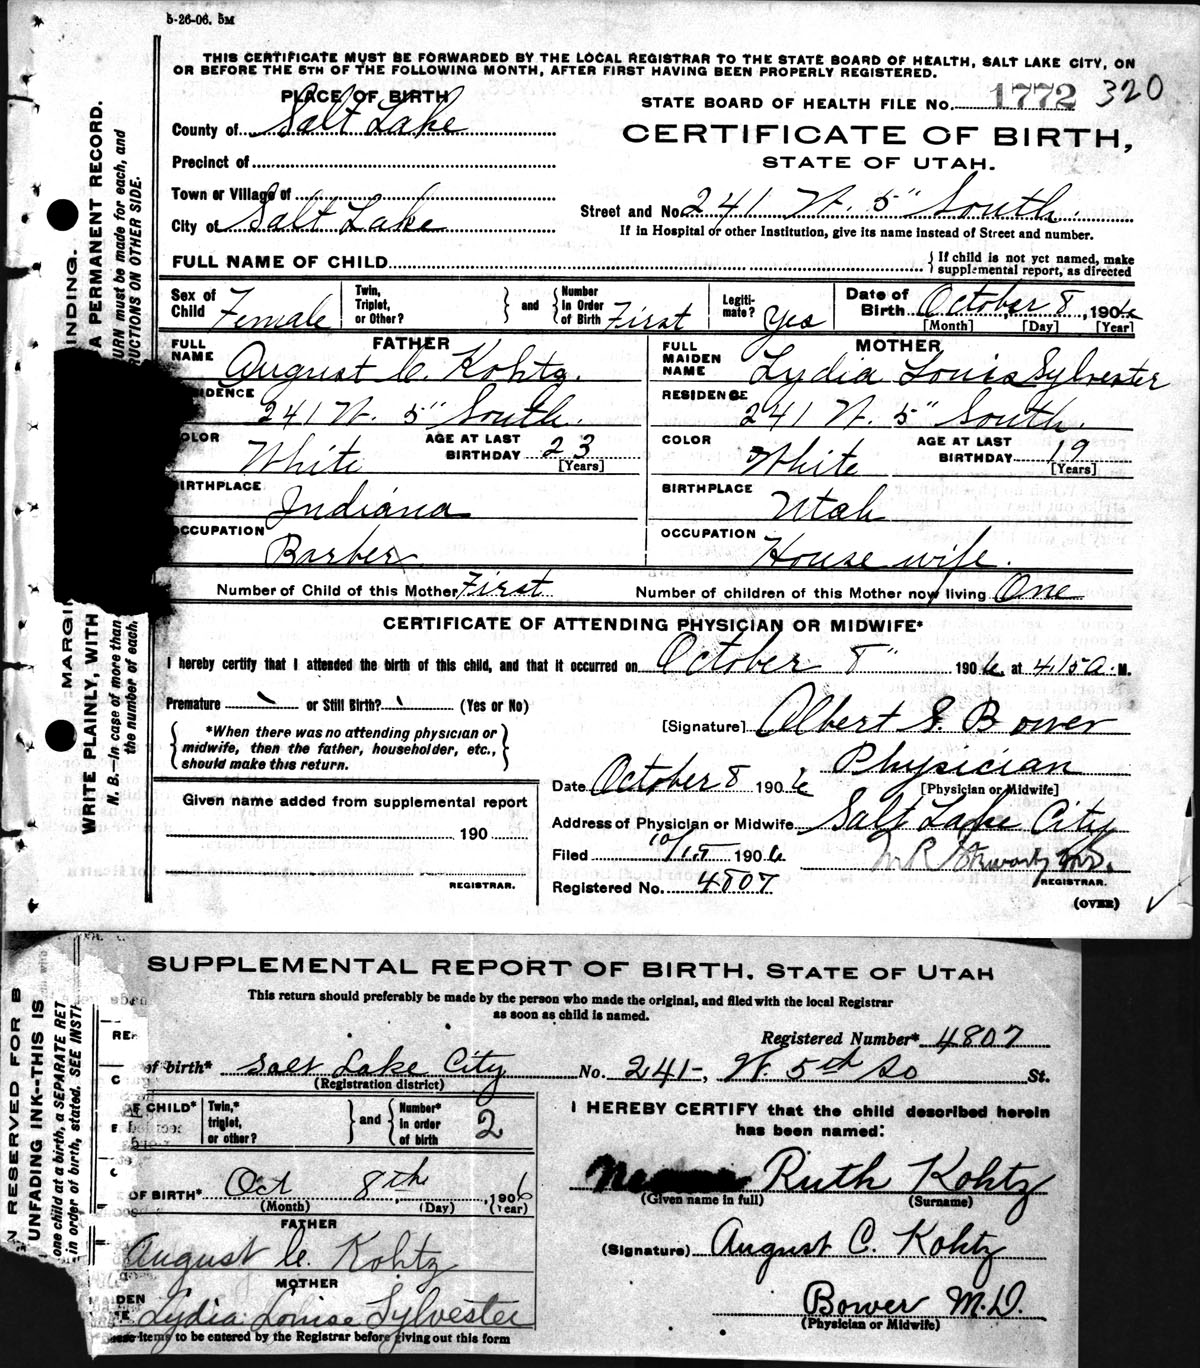 5-26-06. 5M
THIS CERTIFICATE MUST BE FORWARDED BY THE LOCAL REGISTRAR TO THE STATE BOARD OF HEALTH, SALT LAKE CITY, ON
OR BEFORE THE 5TH OF THE FOLLOWING MONTH, AFTER FIRST HAVING BEEN PROPERLY REGISTERED.
PLACE OF BIRTH
STATE BOARD OF HEALTH FILE No. 1772 320
County of Salt Lake
CERTIFICATE OF BIRTH,
STATE OF UTAH.
Precinct of
Town or Village of
Street and No. 241 W. 5" South.
City of Salt Lake
If in Hospital or other Institution, give its name instead of Street and number.
FULL NAME OF CHILD
{ If child is not yet named, make
supplemental report, as directed
Sex of Child Female
Twin, Triplet, or Other? } and { Number In Order of Birth First
Legiti-mate? Yes
Date of Birth October 8, 1906
[Month] [Day] [Year]
FATHER
FULL NAME August C. Kohtz.
RESIDENCE 241 W. 5" South.
COLOR White AGE AT LAST BIRTHDAY 23
[Years]
BIRTHPLACE Indiana
OCCUPATION Barber
MOTHER
FULL MAIDEN NAME Lydia Louis Sylvester
RESIDENCE 241 W. 5" South.
COLOR White AGE AT LAST BIRTHDAY 19
[Years]
BIRTHPLACE Utah
OCCUPATION House wife.
Number of Child of this Mother First Number of children of this Mother now living One
CERTIFICATE OF ATTENDING PHYSICIAN OR MIDWIFE*
I hereby certify that I attended the birth of this child, and that it occurred on October 8" 1906 at 415 a. M.
Premature or Still Birth? (Yes or No)
[Signature] Albert S. Bower
{ *When there was no attending physician or
midwife, then the father, householder, etc.,
should make this return. }
Physician
[Physician or Midwife]
Date October 8 1906
Address of Physician or Midwife Salt Lake City
Filed 10/15 1906
REGISTRAR.
Registered No. 4807
(OVER)
Given name added from supplemental report
190
REGISTRAR.
MARGI
INDING.
WRITE PLAINLY, WITH
A PERMANENT RECORD.
N. B.—In case of more than
URN must be made for each, and
the number of each,
UCTIONS ON OTHER SIDE.
SUPPLEMENTAL REPORT OF BIRTH, STATE OF UTAH
This return should preferably be made by the person who made the original, and filed with the local Registrar
as soon as child is named.
Registered Number* 4807
of birth* Salt Lake City No. 241-, W. 5th So St.
(Registration district)
OF CHILD* Twin,* triplet, or other? } and { Number* in order of birth 2
OF BIRTH* Oct 8th, 1906
(Month) (Day) (Year)
FATHER
August C. Kohtz
MOTHER
Lydia Louise Sylvester
These items to be entered by the Registrar before giving out this form
I HEREBY CERTIFY that the child described herein
has been named:
Ruth Kohtz
(Given name in full) (Surname)
(Signature) August C. Kohtz
Bower M.D.
(Physician or Midwife)
N RESERVED FOR B
UNFADING INK--THIS IS
one child at a birth, a SEPARATE RET
in order of birth, stated. SEE INSTR